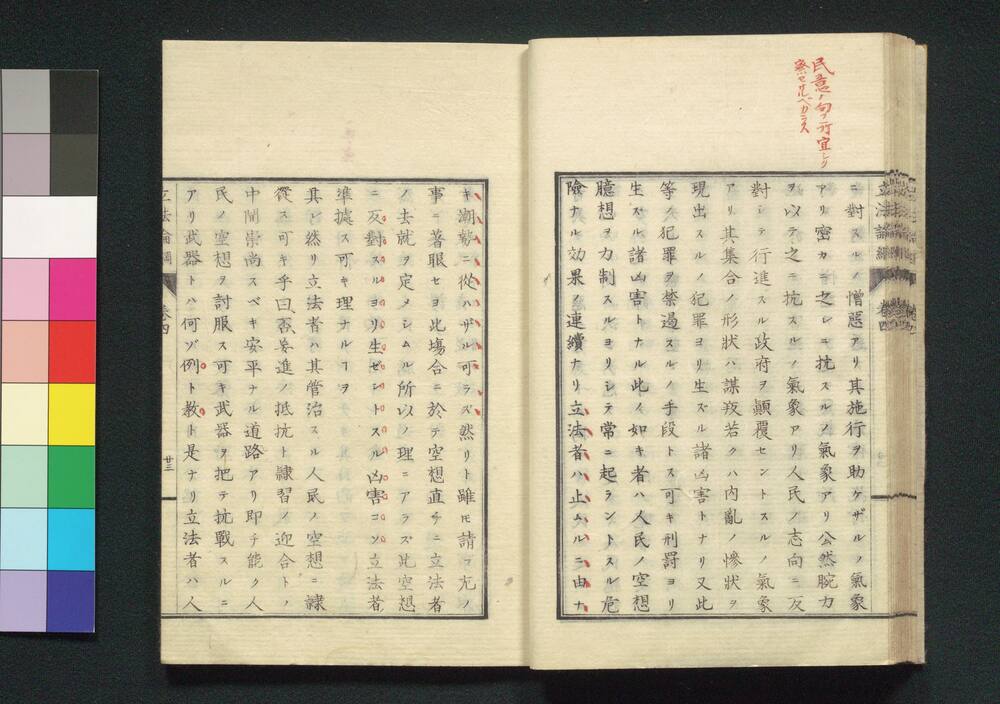 民意ノ向フ所宜シク
察セサルベカラス
ニ對スルノ憎惡アリ其施行ヲ助ケザルノ氣象
アリ密カニ之レニ抗スルノ氣象アリ公然腕力
ヲ以テ之ニ抗スルノ氣象アリ人民ノ志向ニ反
對シテ行進スル政府ヲ顚覆セントスルノ氣象
アリ其集合ノ形狀ハ謀叛若クハ内亂ノ慘狀ヲ
現出スルノ犯罪ヨリ生ズル諸凶害トナリ又此
等ノ犯罪ヲ禁遏スルノ手段トス可キ刑罰ヨリ
生スル諸凶害トナル此ノ如キ者ハ人民ノ空想
臆想ヲ力制スルヨリシテ常ニ起ラントスル危
險ナル效果ノ連續ナリ立法者ハ止ムルニ由ナ
キ潮勢ニ從ハザル可ラズ然リト雖モ請フ尤ノ
事ニ著眼セヨ此塲合ニ於テ空想直チニ立法者
ノ去就ヲ定メシムル所以ノ理ニアラズ此空想
ニ反對スルヨリ生ゼントスル凶害コソ立法者
準據ス可キ理ナルヿヲ
其レ然リ立法者ハ其管治スル人民ノ空想ニ隷
從ス可キ乎曰否妄進ノ抵抗ト隷習ノ迎合トノ
中間崇尚スベキ安平ナル道路アリ即チ能ク人
民ノ空想ヲ討服ス可キ武器ヲ把テ抗戰スルニ
アリ武器トハ何ゾ例ト教ト是ナリ立法者ハ人
立法論綱
卷四
廿三